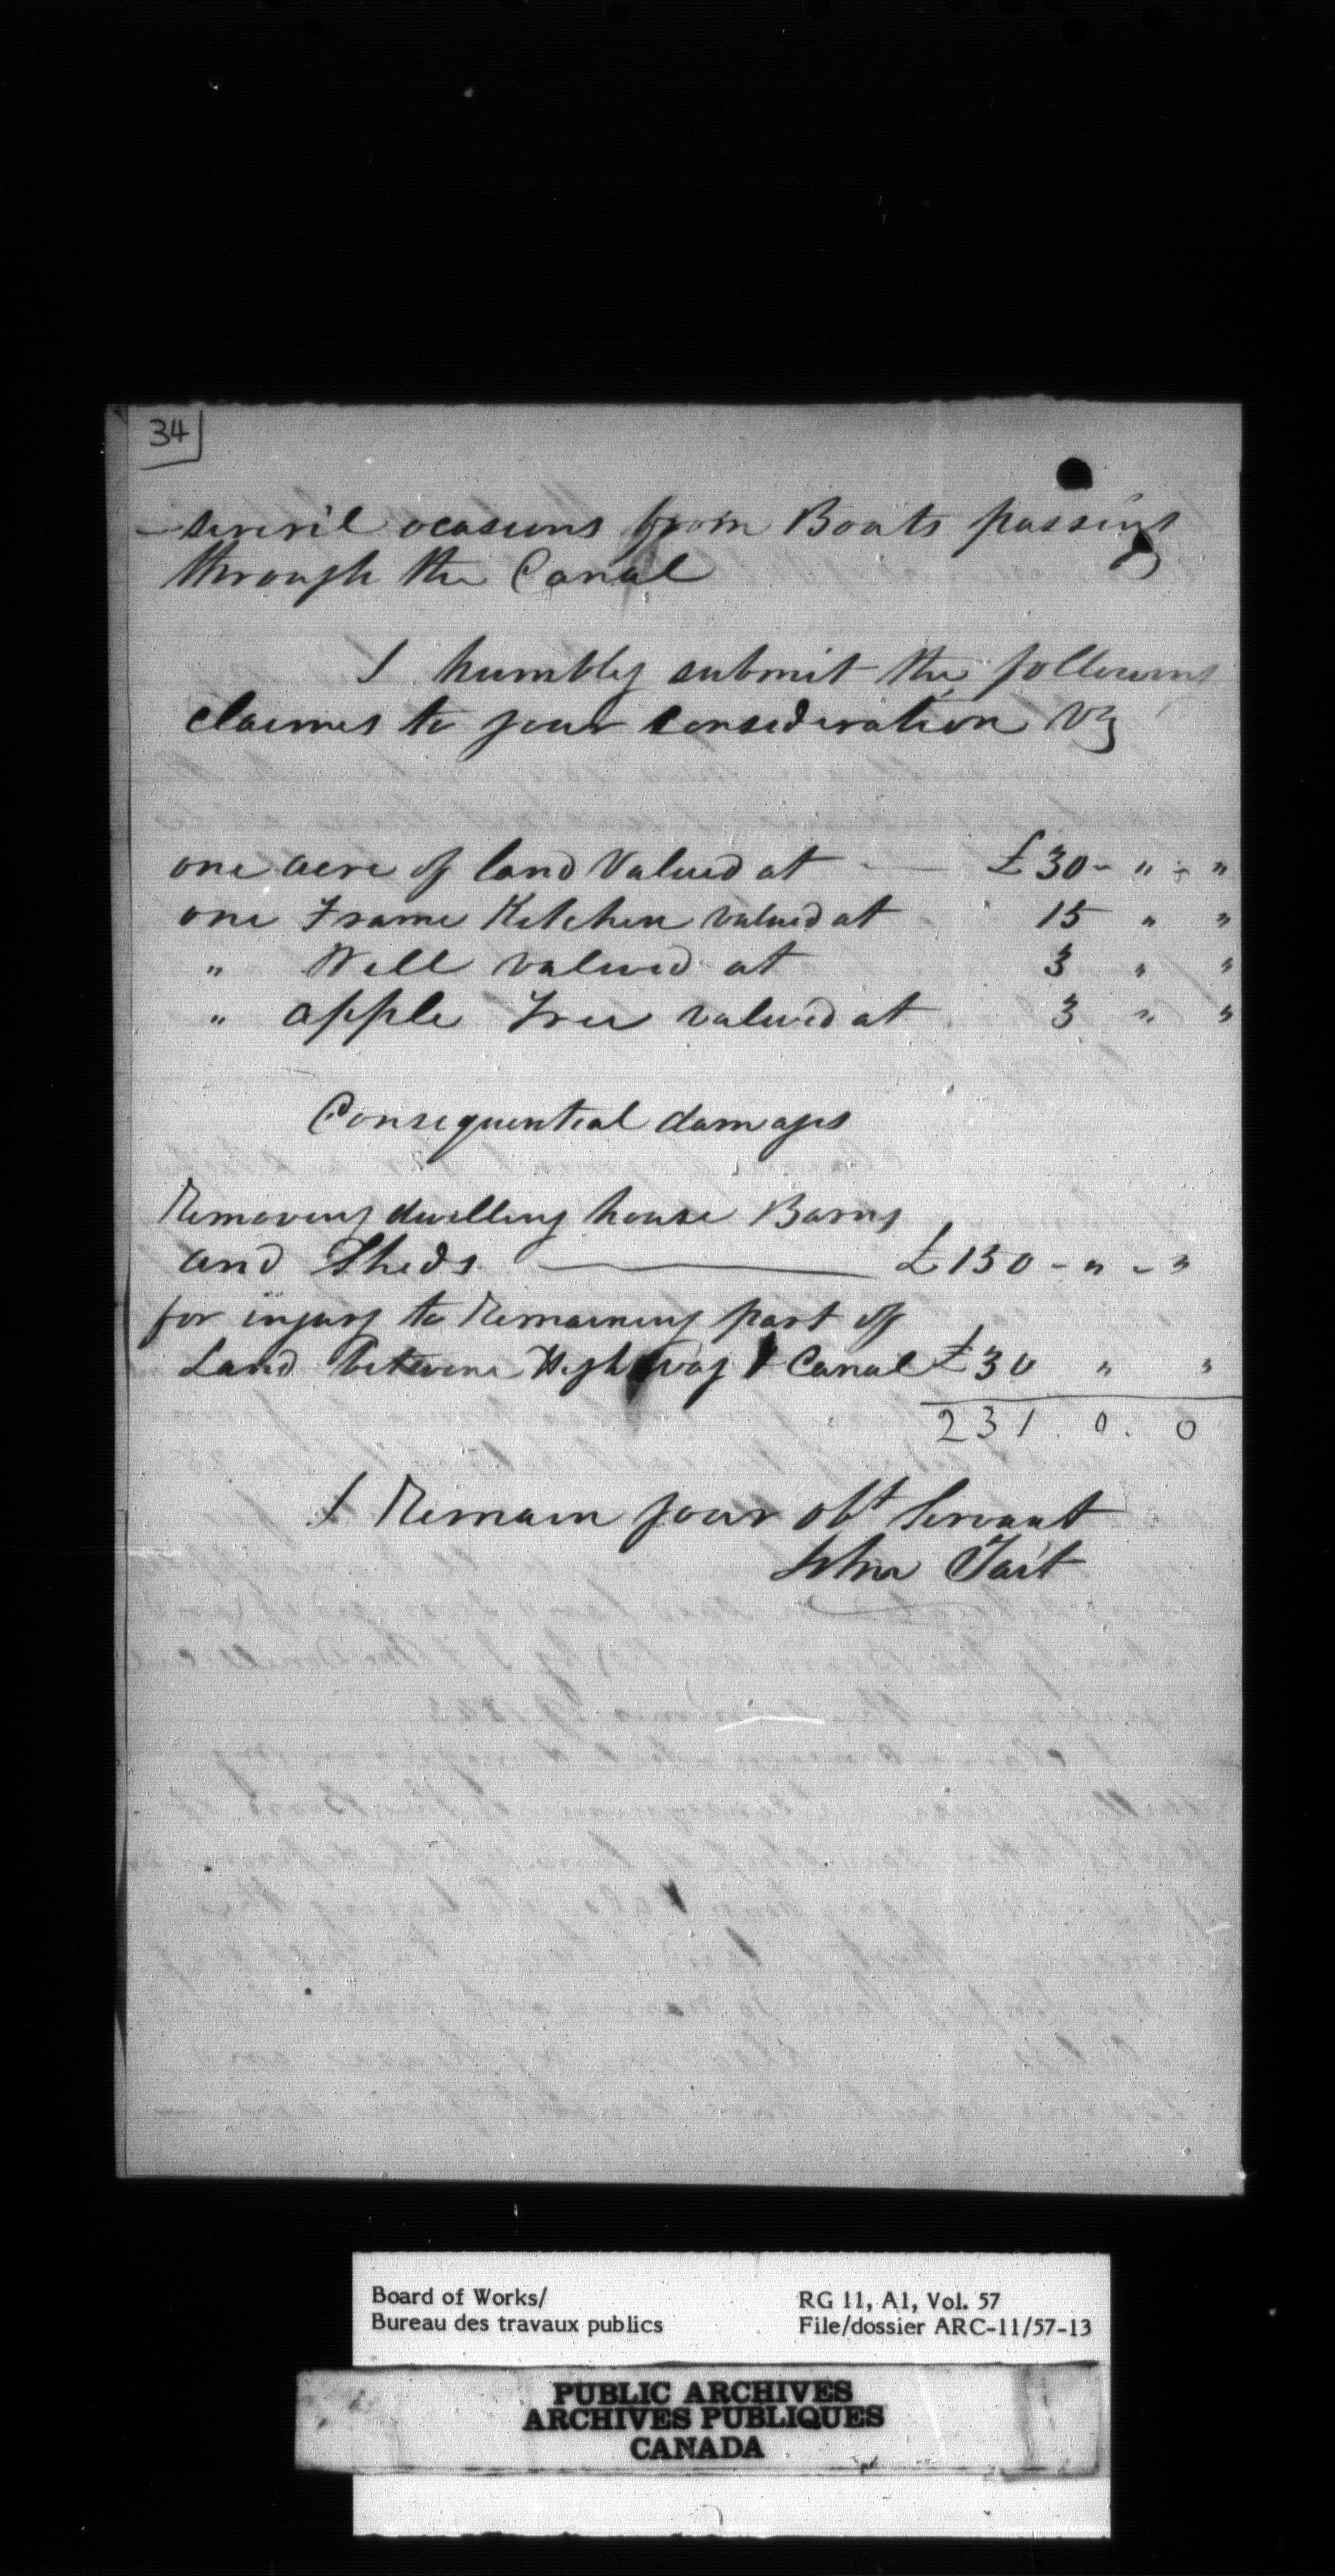 34
severil ocasions from Boats passing
through the Canal
I humbly submit the following
claimes to your consideration Viz
one acre of land Valued at — £30 - " - "
one Frame Kitchen valued at 15 " "
" Well valued at 3 " "
" apple Tree valued at 3 " "
Consequential damages
Removing dwelling house Barns
and Sheds — £150 - " - "
for injury to Remaining part of
Land betwene High Way & Canal £30 " "
231. 0. 0
I Remain your obt Servant
John Tait
Board of Works/
Bureau des travaux publics
RG 11, A1, Vol. 57
File/dossier ARC-11/57-13
PUBLIC ARCHIVES
ARCHIVES PUBLIQUES
CANADA